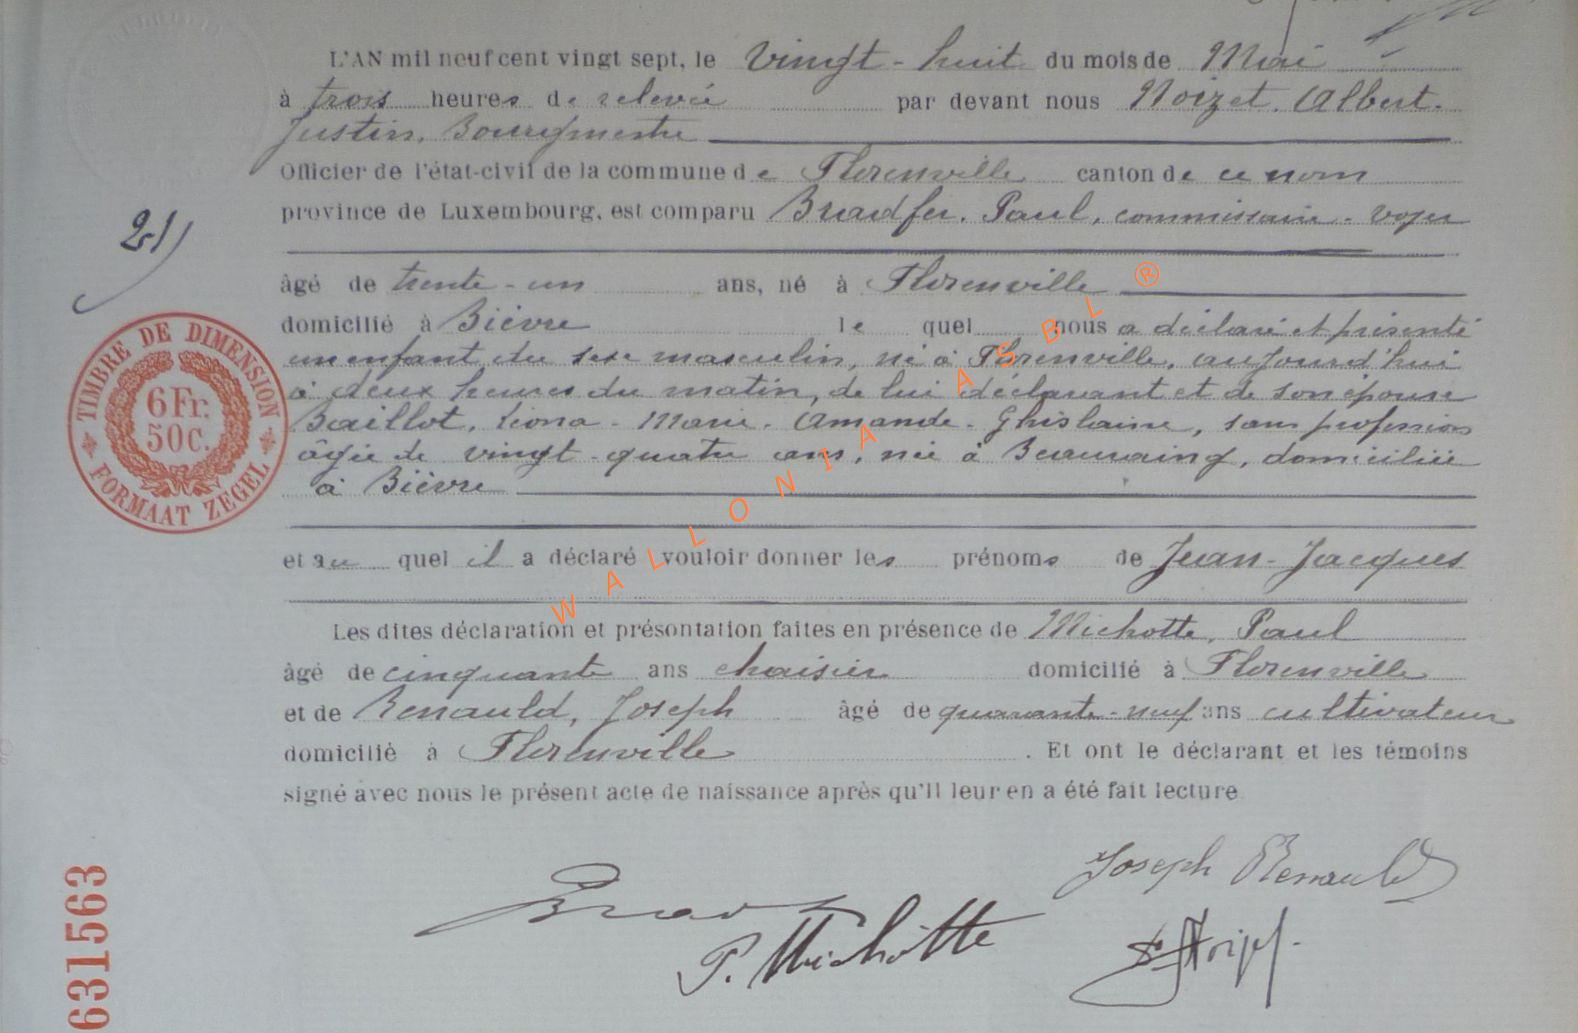 L'AN mil neuf cent vingt sept, le vingt-huit du mois de Mai
à trois heures de relevée par devant nous Noizet. Albert.
Justin, Bourgmestre
Officier de l'état-civil de la commune de Florenville canton de ce nom
province de Luxembourg, est comparu Bradfer, Paul, commissaire-voyer
21)
âgé de trente-un ans, né à Florenville
domicilié à Bièvre lequel nous a déclaré et présenté
un enfant du sexe masculin, né à Florenville, aujourd'hui
à deux heures du matin, de lui déclarant et de son épouse
Baillot, Léona-Marie-Amande-Ghislaine, sans profession
âgée de vingt-quatre ans, née à Beauraing, domiciliée
à Bièvre
et au quel il a déclaré vouloir donner les prénoms de Jean-Jacques
Les dites déclaration et présontation faites en présence de Michotte, Paul
âgé de cinquante ans chaisier domicilié à Florenville
et de Renauld, Joseph âgé de quarante-neuf ans cultivateur
domicilié à Florenville. Et ont le déclarant et les témoins
signé avec nous le présent acte de naissance après qu'il leur en a été fait lecture
TIMBRE DE DIMENSION
6 Fr.
50 C.
FORMAAT ZEGEL
WALLONIA ASBL ®
Joseph Renauld
P. Michotte
631563